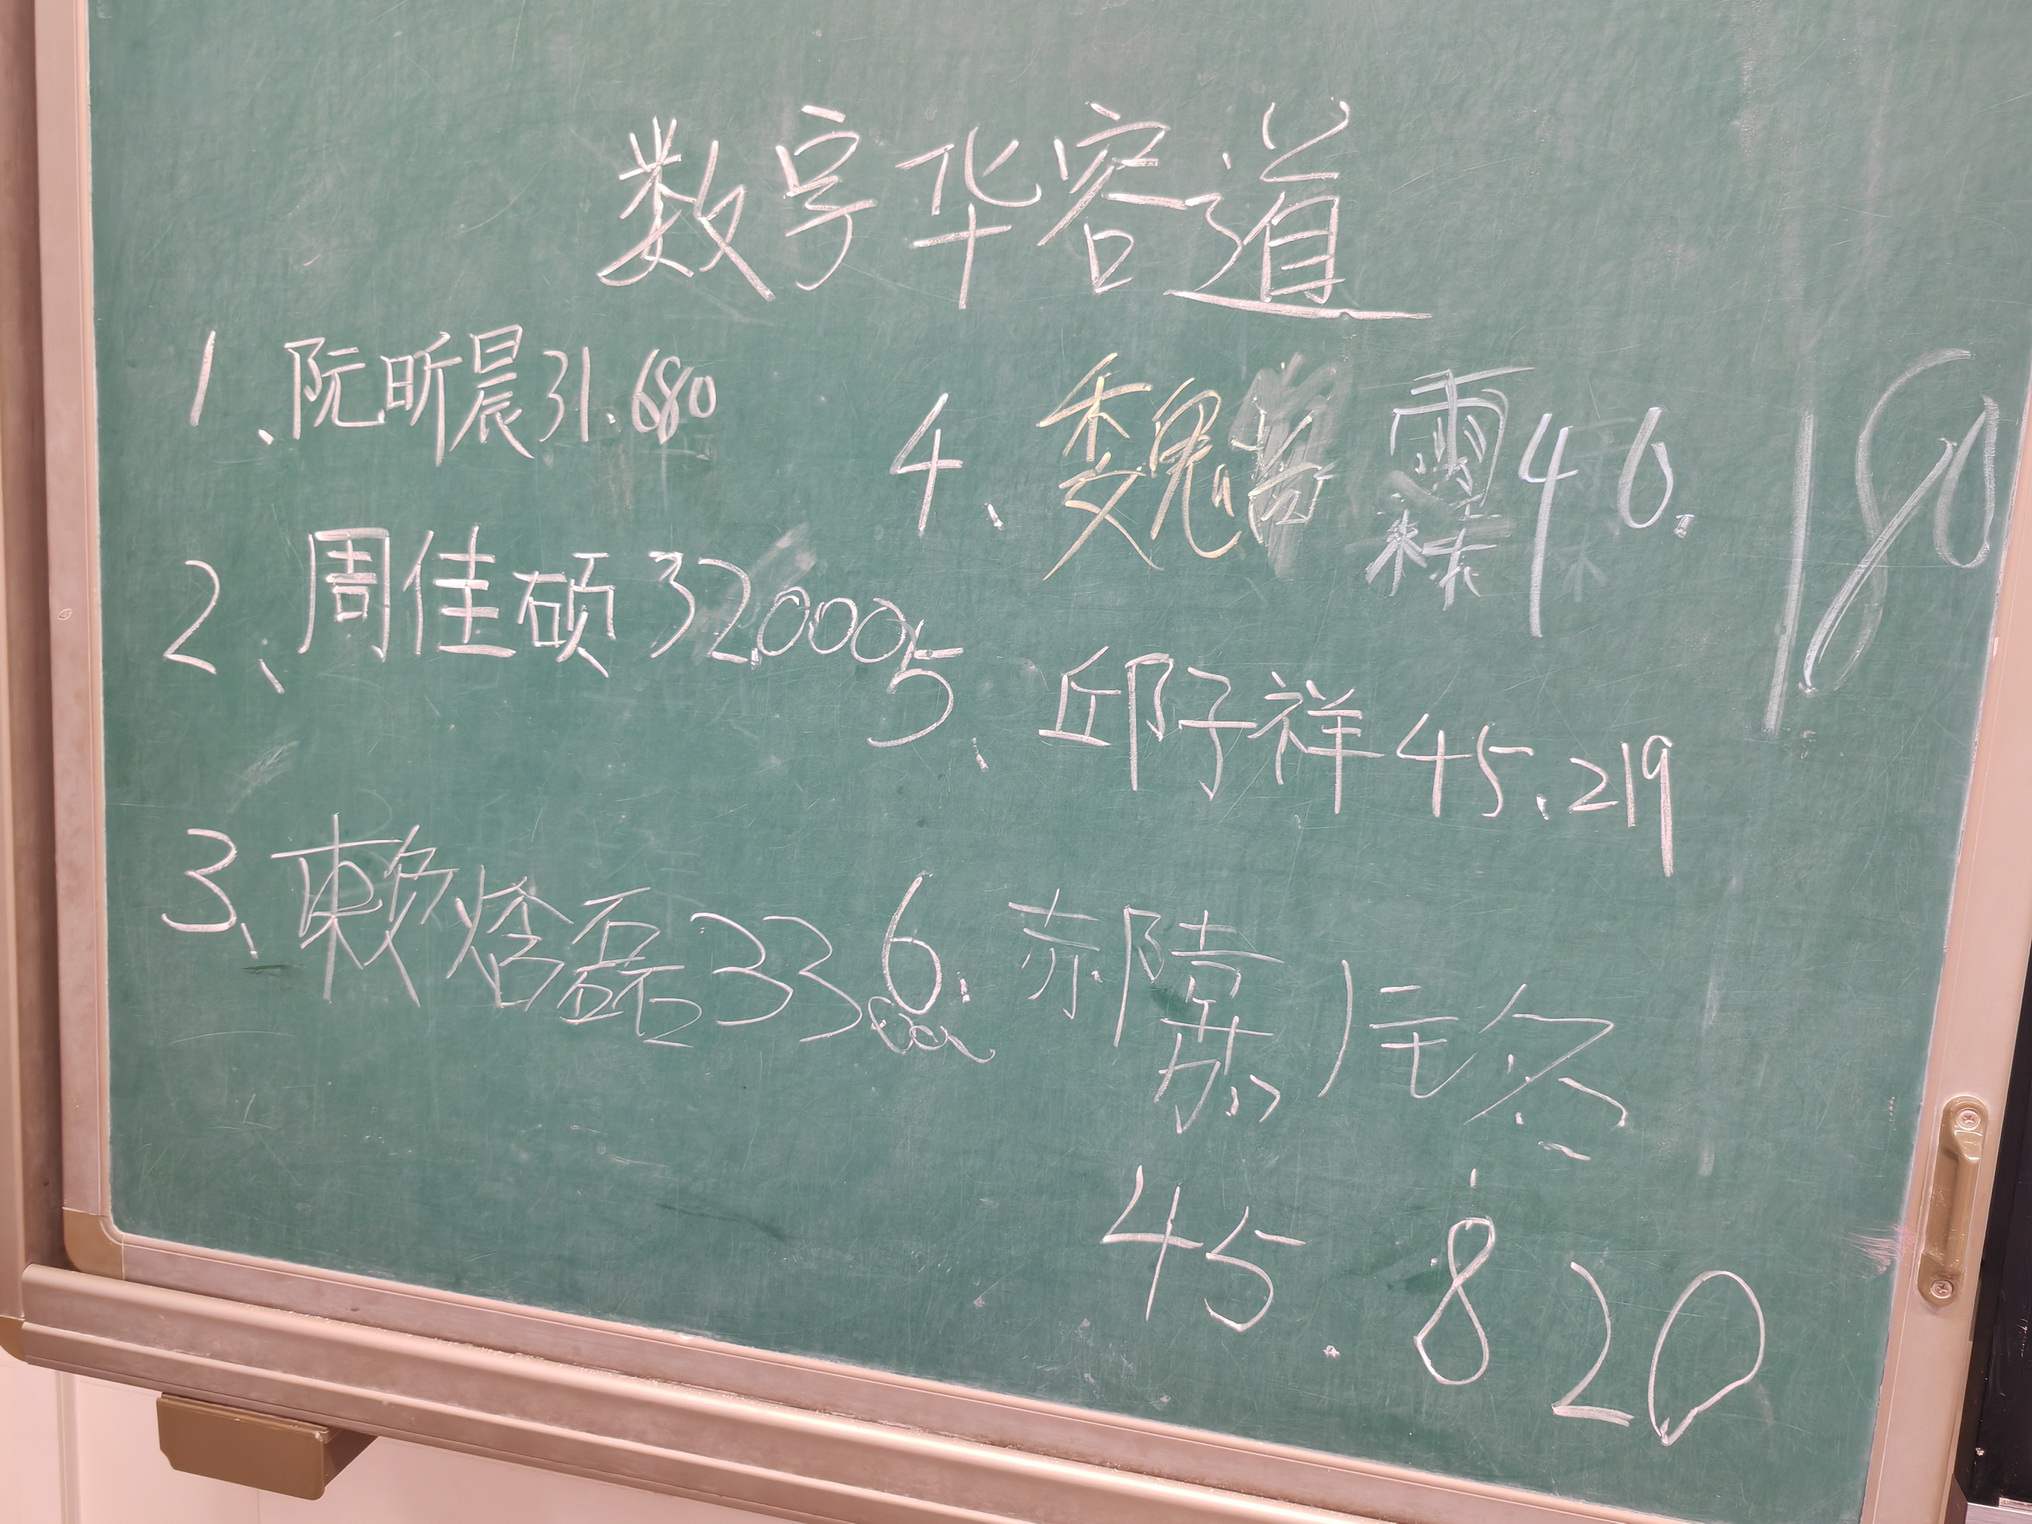 数字华容道
1、阮昕晨31.680
2、周佳硕32.000
3、赖焓磊33.
4、魏 霖40.180
5、邱子祥45.219
6、
45.820